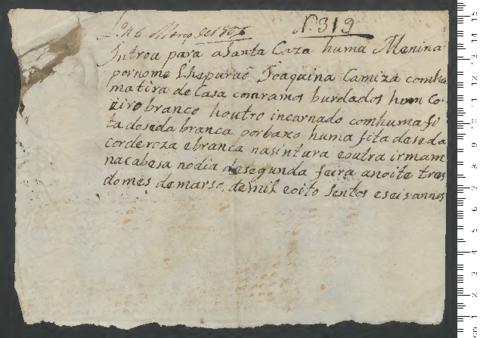 N. 319
Introu para a Santa Caza huma Menina
por nome Joaquina Camiza com hu
ma tira de Casa com ramos burdados hum Co
eiro branco houtro incarnado com huma fi
ta de seda branca por baxo huma fita de seda
cor de roza e branca na sintura e outra irmam
na cabesa no dia de segunda feira a noite tres
do mes de marso, de mil e oito sentos e seis annos